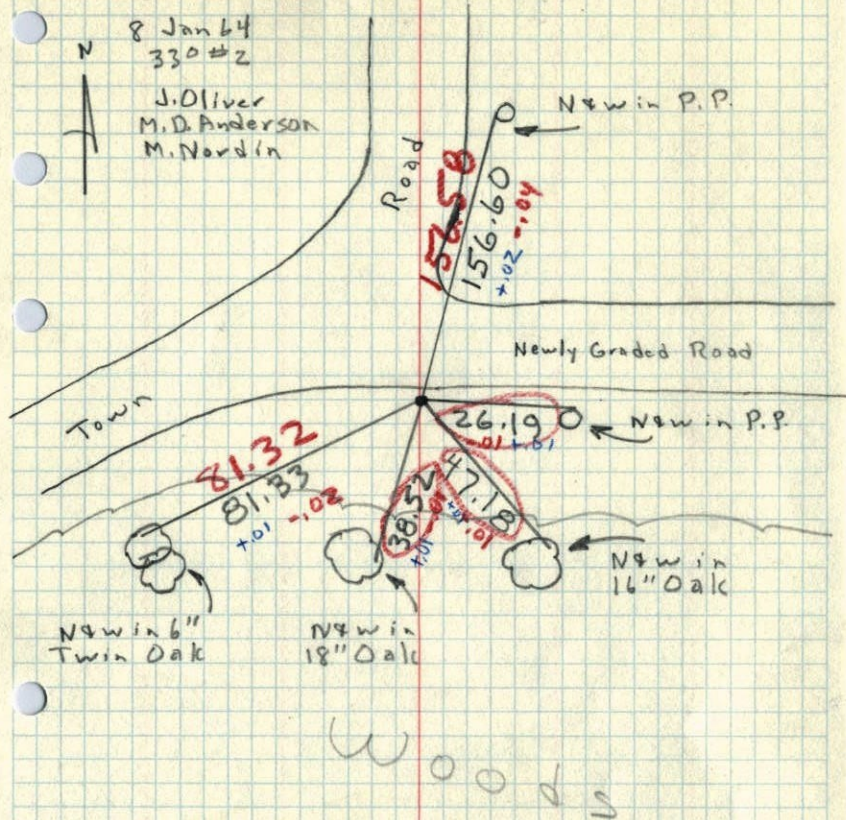 8 Jan 64
33° #2
N
J. Oliver
M. D. Anderson
M. Nordin
N & W in P.P.
Road
156.58
156.60
+.02 -.04
Newly Graded Road
Town
26.19
.01 +.01
N & W in P.P.
81.32
81.33
+.01 -.02
38.52
+.01
47.18
+.01 +.01
N & W in
16" Oak
N & W in 6"
Twin Oak
N & W in
18" Oak
Woods